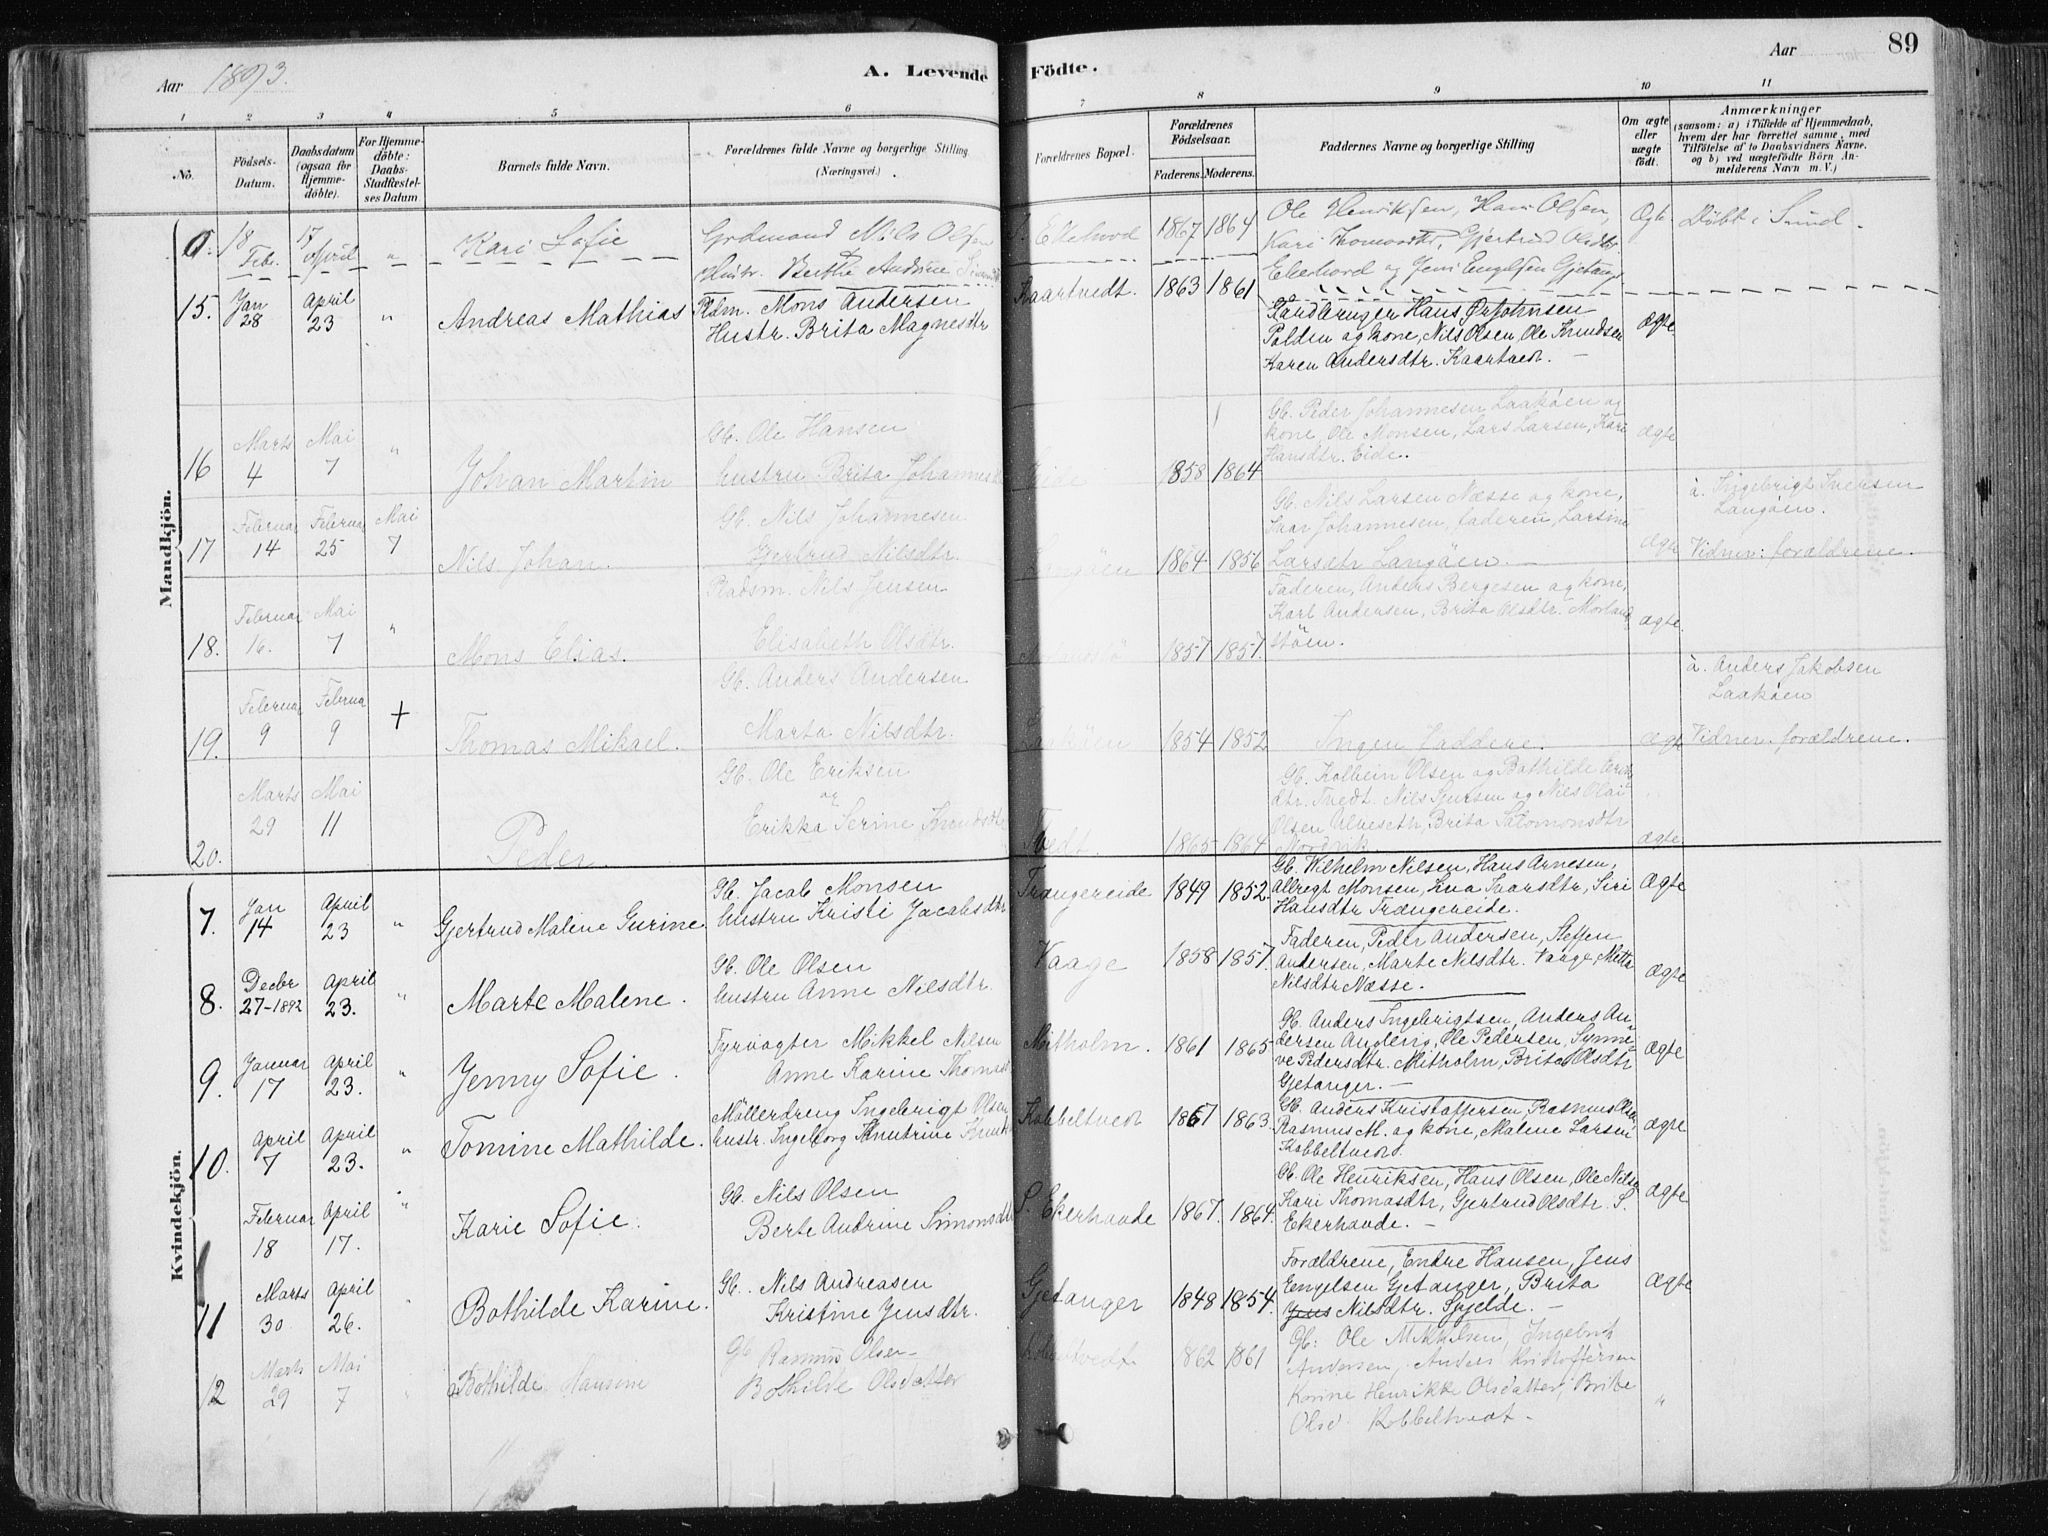 Aar 1893.
A. Levende Födte.
Aar
89
1 2 3 4 5 6 7 8 9 10 11
No.
Födsels-Datum.
Daabsdatum (ogsaa for Hjemmedöbte).
For Hjemmedöbte: Daabs-Stadfæstelses Datum
Barnets fulde Navn.
Forældrenes fulde Navne og borgerlige Stilling (Næringsvei).
Forældrenes Bopæl.
Forældrenes Födselsaar.
Faderens. Moderens.
Faddernes Navne og borgerlige Stilling
Om ægte eller uægte födt.
Anmærkninger
(saasom: a) i Tilfælde af Hjemmedaab, hvem der har forrettet samme, med Tilföielse af to Daabsvidners Navne, og b) ved uægtefödte Börn Anmelderens Navn m. V.)
Mandkjön.
18 Feb. 17 April " Kari Sofie
Nils Olsen
Hustr. Berthe Andrine
1867 1864
Ole Henriksen, Hans Olsen,
Kari Thomasdtr, Gjertrud Olsdtr
Ekerhovd og Jens Engelsen Gjetang
Ægte Döbt i Sund.
15. Jan 28 April 23 " Andreas Mathias
Pldm. Mons Andersen
Hustr. Brita Magnesdtr
Kaartvedt. 1863 1861
Strandbruger Hans Ørjohnsen
Polden og kone, Nils Olsen, Ole Knudsen
Karen Andersdtr. Kaartvedt. —
Ægte
16 Marts 4 Mai 7 " Johan Martin
Gb. Ole Hansen
hustru Brita Johannesd
Eide 1858 1864
Gb. Peder Johannesen Laaköen og
kone, Ole Monsen, Lars Larsen, Kari
Hansdtr. Eide.
ægte
17 Februar 14 Februar 25 Mai 7 Nils Johan.
Gb. Nils Johannesen
Gjertrud Nilsdtr.
Langöen 1864 1856
Gb. Nils Larsen Næsse og kone,
Johannesen, faderen, Larsine
Larsdtr Langöen. —
ægte
à. Ingebrigt Iversen
Langöen.
Vidner: forældrene.
18. Februar 16. Mai 7 " Mons Elias.
Pladsm. Nils Jensen
Elisabeth Olsdtr.
1857 1857.
Faderen, Anders Bergesen og kone,
Karl Andersen, Brita Olsdtr. Morland
stöen.
ægte.
19. Februar 9 Februar 9 + Thomas Mikael.
Gb. Anders Andersen
Marta Nilsdtr.
Laaköen 1854 1852
Ingen Faddere.
ægte
à. Anders Jakobsen
Laaköen
Vidner: forældrene.
20. Marts 29 Mai 11 Peder.
Gb. Ole Eriksen
og
Erikka Serine Knudsdtr
Tvedt. 1865 1864
Gb. Kolbein Olsen og Bothilde Erik
dtr. Tvedt. Nils Sjursen og Nils Olai
Olsen Ulveseth, Brita Salomonsdtr
Nordvik.
ægte
Kvindekjön.
7. Jan 14 April 23 " Gjertrud Malene Gurine.
Gb. Jacob Monsen
hustru Kristi Jacobsdtr
Trængereide 1849 1852.
Gb. Wilhelm Nilsen, Hans Arnesen,
Allregt Monsen, Eva Ivarsdtr, Siri
Hansdtr Trængereide.
Ægte
8. Decbr 27-1892 April 23. " Marte Malene.
Gb. Ole Olsen
hustru Anne Nilsdtr.
Vaage 1858 1857.
Faderen, Peder Andersen, Steffen
Andersen, Marte Nilsdtr. Vaage, Metta
Nilsdtr Næsse.
ægte
9. Januar 17 April 23. " Jenny Sofie.
Fyrvogter Mikkel Nilsen
Anne Karine Thomasd
Mitholm. 1861 1865
Gb. Anders Ingebrigtsen, Anders An-
dersen Angleng, Ole Pedersen, Synne-
ve Pedersdtr. Mitholm, Brita Olsdtr
Gjetanger. —
ægte
10. April 7 April 23. " Tomine Mathilde.
Möllerdreng Ingebrigt Olsen
hustr. Ingeborg Knutrine Knutsd
Kobbeltvedt 1867 1863.
Gb. Anders Kristoffersen, Rasmus Olsen,
Rasmus M. og kone, Malene Larsen
Kobbeltvedt.
ægte
Februar 18 April 17. " Karie Sofie.
Gb. Nils Olsen
Berte Andrine Simonsdtr
S. Ekerhovde 1867. 1864.
Gb. Ole Henriksen, Hans Olsen, Ole Nilsen
Kari Thomasdtr, Gjertrud Olsdtr. S.
Ekerhovde. —
ægte
11 Marts 30. April 26. Bothilde Karine.
Gb. Nils Andreasen
Kristine Jensdtr.
Gjetanger 1848 1854.
Forældrene, Endre Hansen, Jens
Engelsen Gjetanger, Brita
Jens Nilsdtr. Spjelde. —
Ægte
12 Marts 29 Mai 7 " Bothilde Hansine
Gb Rasmus Olsen
Bothilde Olsdatter
Kobbeltvedt 1862 1861
Gb: Ole Mikkelsen, Ingebrigt
Andersen, Anders Kristoffersen
Karine Henrikke Olsdatter, Brite
Olsd. Kobbeltvedt.
"